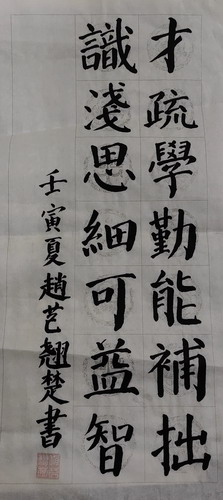 才疏學勤能補拙
識淺思細可益智
壬寅夏趙芑翹楚書